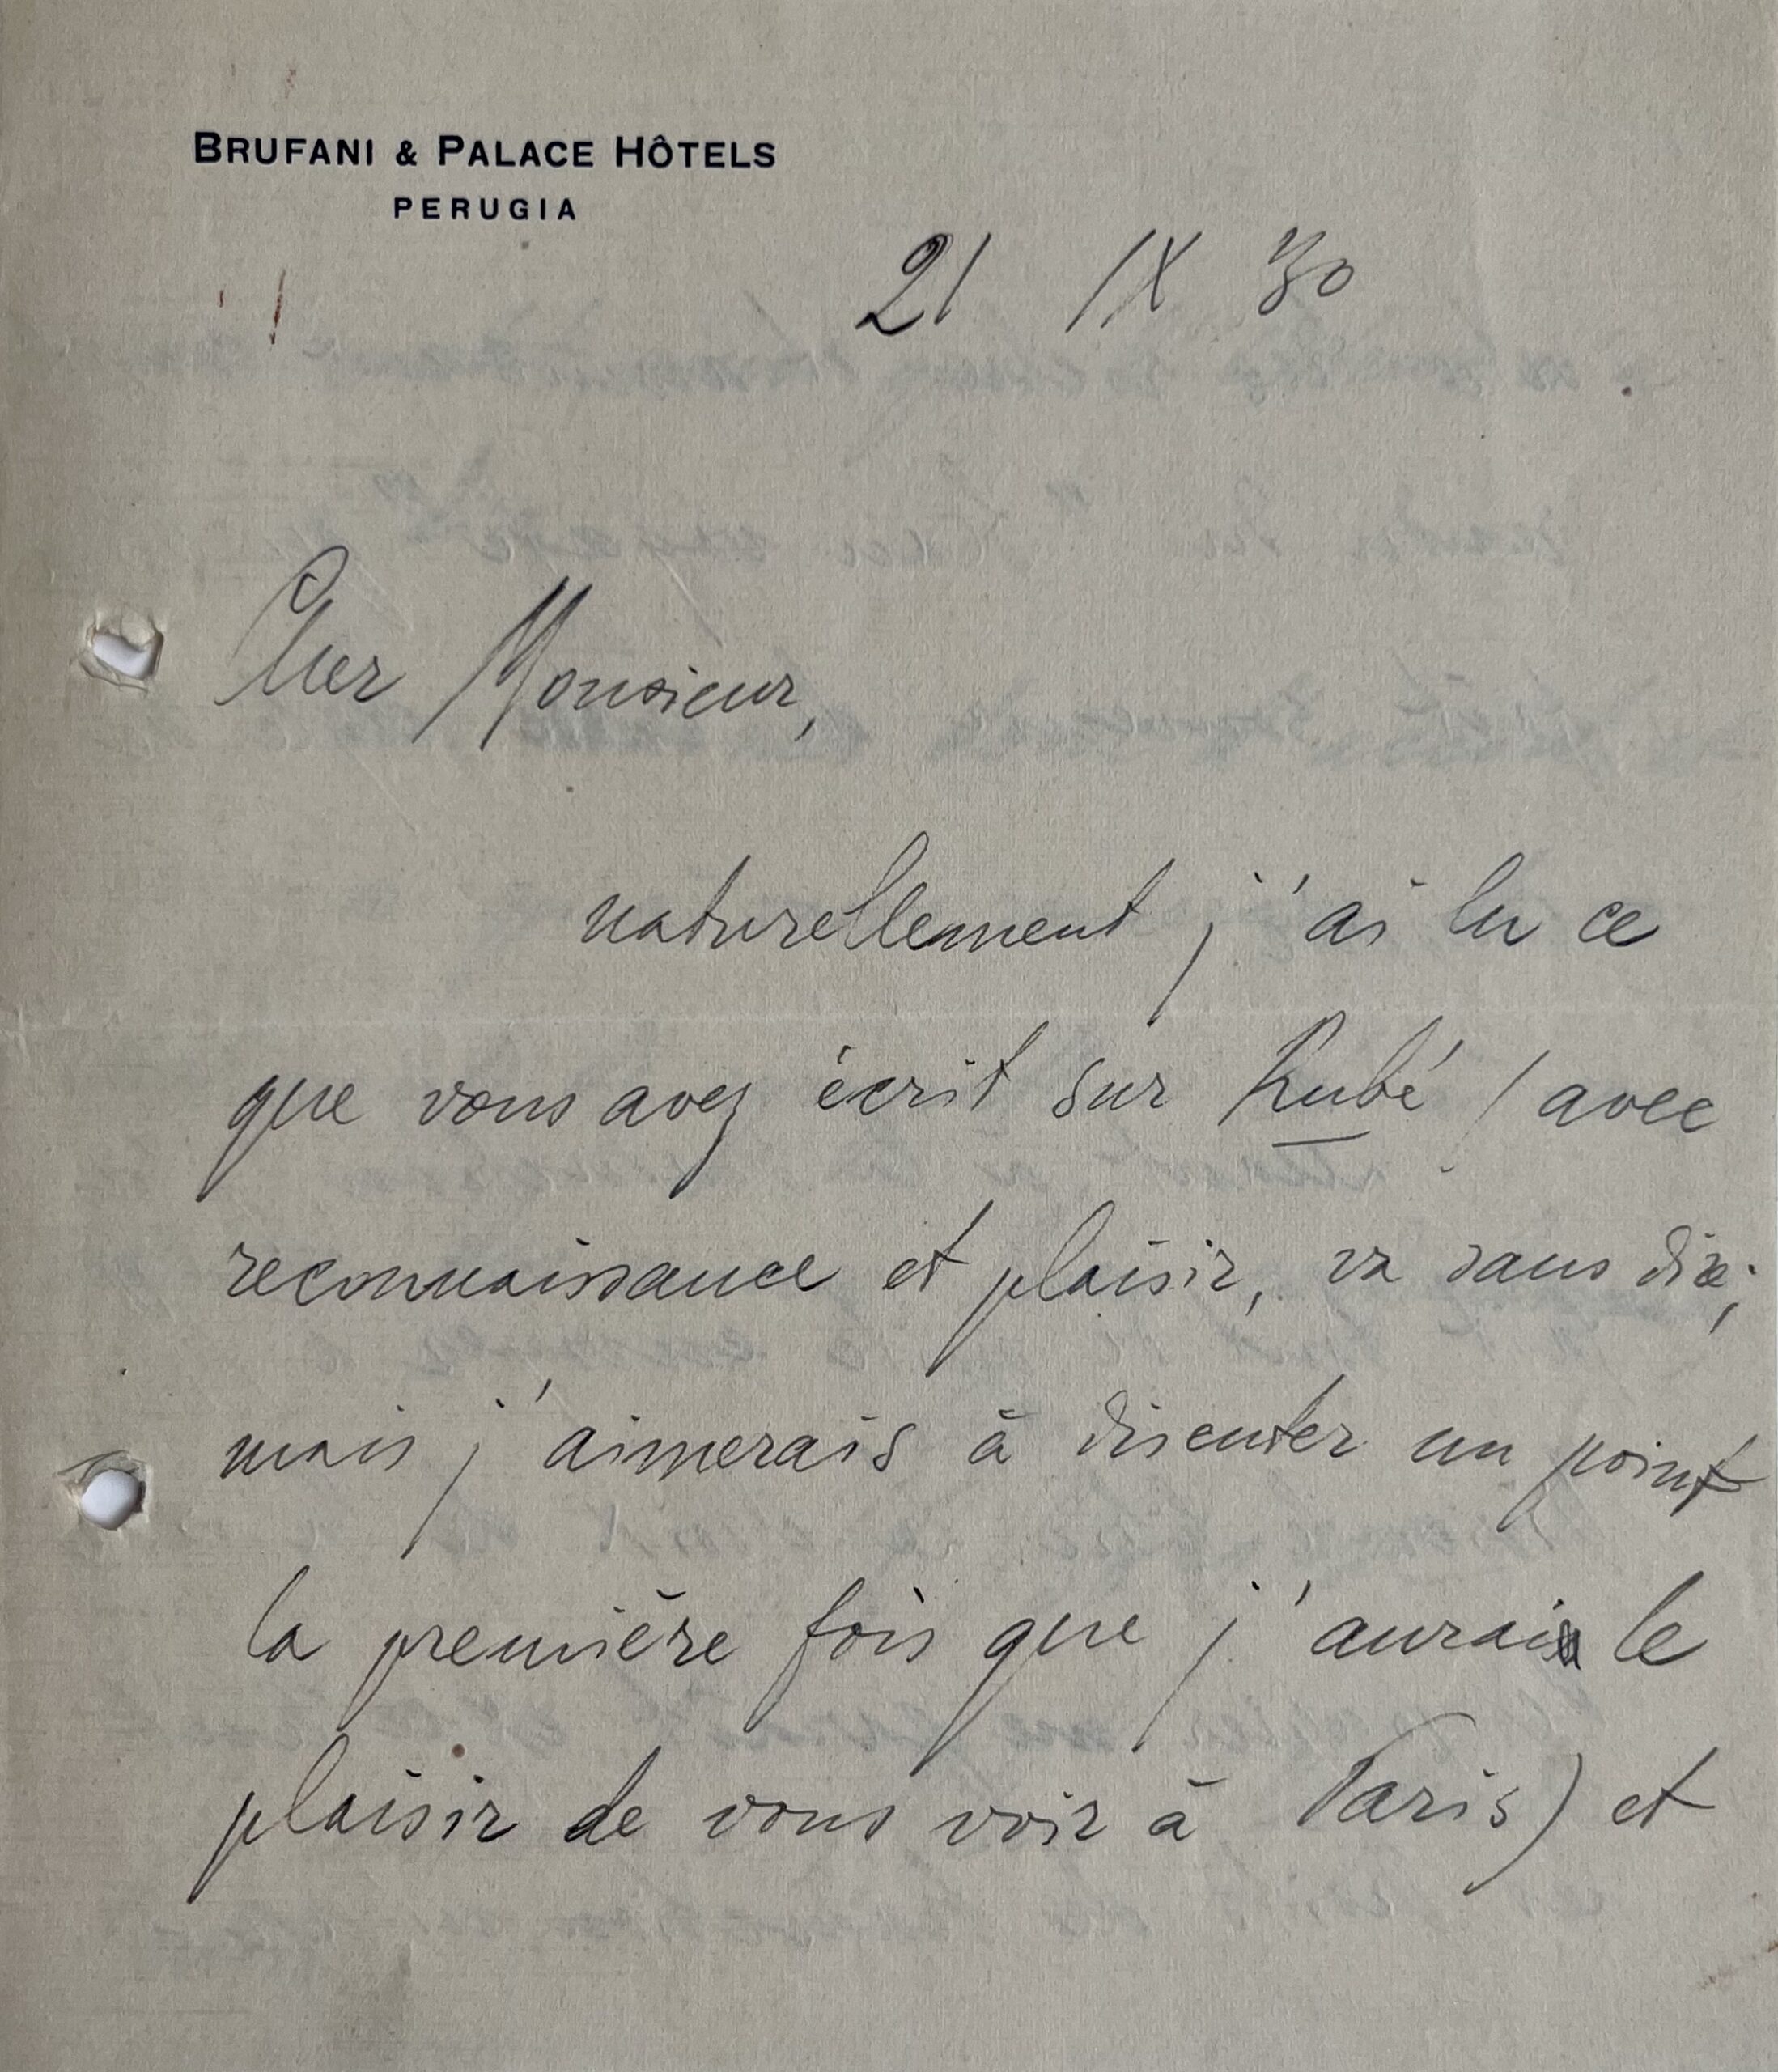 BRUFANI & PALACE HÔTELS
PERUGIA
21 IX 30
Cher Monsieur,
naturellement j'ai lu ce
que vous avez écrit sur Rubé (avec
reconnaissance et plaisir, va sans dire;
mais j'aimerais à discuter un point
la première fois que j'aurai le
plaisir de vous voir à Paris) et